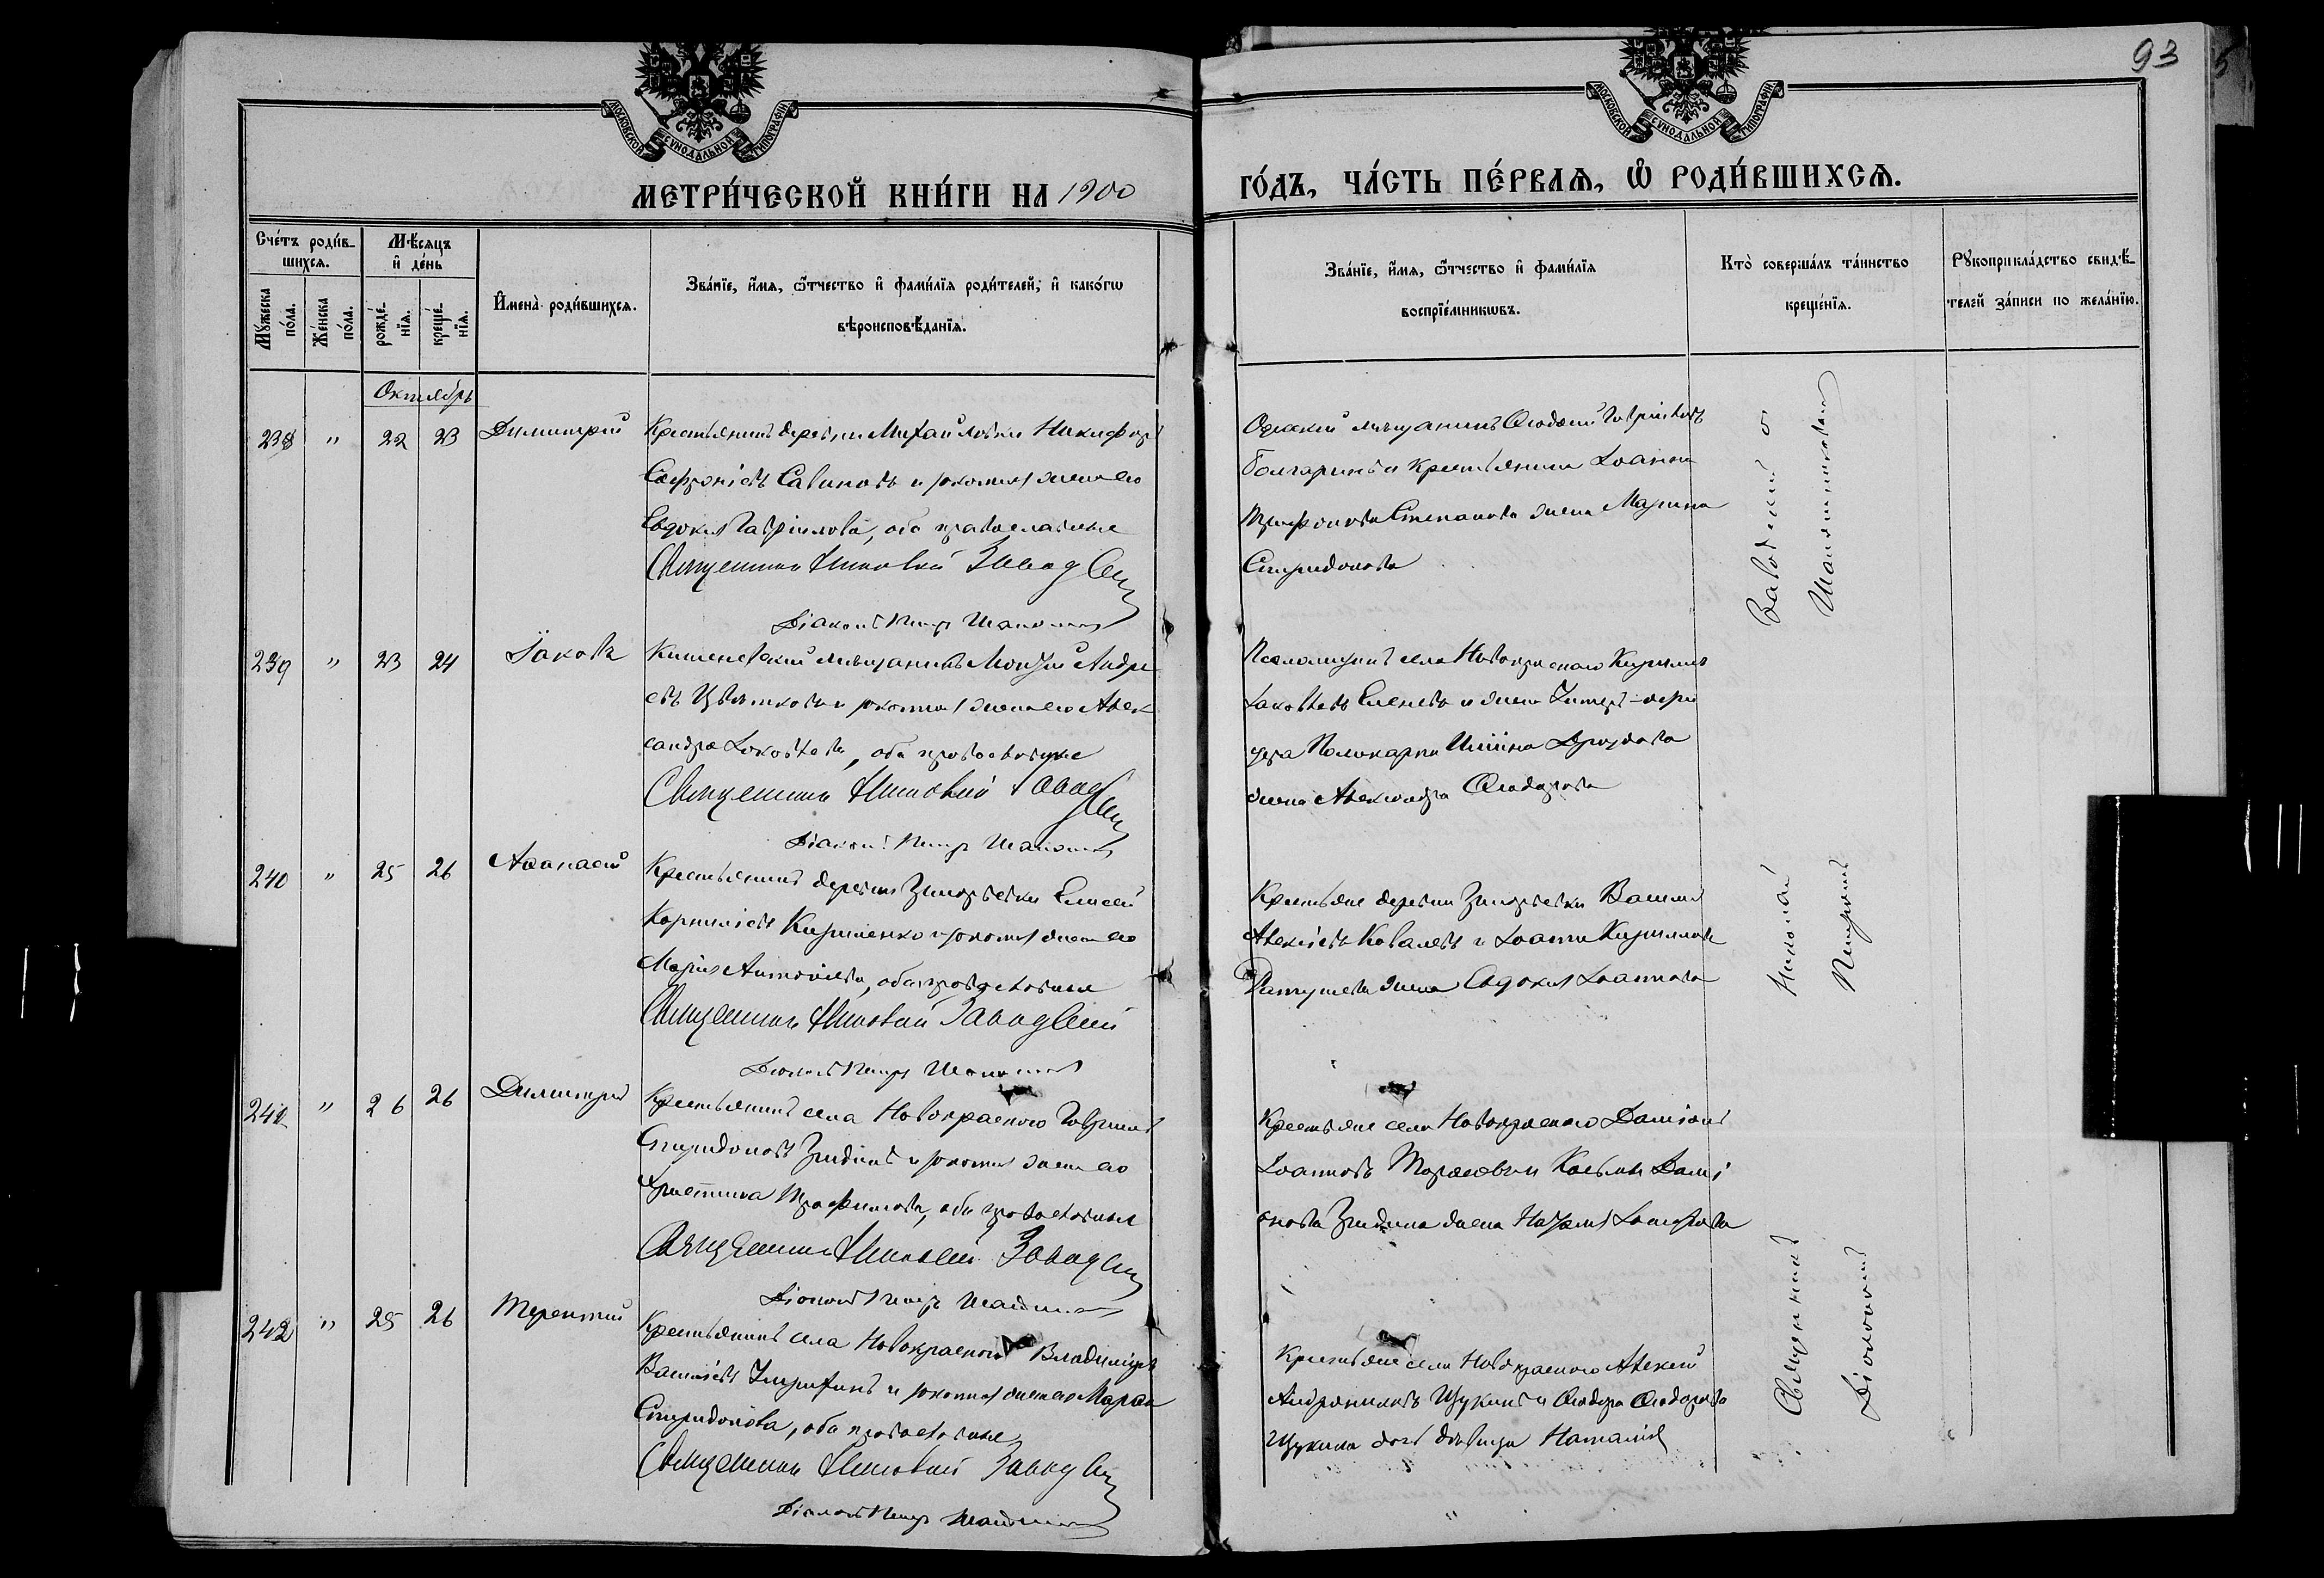 93
МОСКОВСКОЙ СѴНОДАЛЬНОЙ ТИПОГРАФІИ
МОСКОВСКОЙ СѴНОДАЛЬНОЙ ТИПОГРАФІИ
МЕТРИ́ЧЕСКОЙ КНИ́ГИ НА 1900
ГО́ДЪ, ЧА́СТЬ ПЕ́РВАѦ, Ѡ РОДИ́ВШИХСѦ.
Сче́тъ роди́в-
шихсѧ.
Мꙋ́жеска
по́ла.
Же́нска
по́ла.
Мѣ́сяцъ
и҆ де́нь
рожде́-
нїѧ.
креще́-
нїѧ.
И҆мена̀ роди́вшихсѧ.
Зва́нїе, и҆́мѧ, ѻ҆́тчество и҆ фами́лїѧ роди́телей; и҆ како́гѡ
вѣроисповѣ́данїѧ.
Зва́нїе, и҆́мѧ, ѻ҆́тчество и҆ фами́лїѧ
воспрїе́мникѡвъ.
Кто̀ соверша́лъ та́инство
креще́нїѧ.
Рꙋкоприкла́дство свидѣ́-
телей за́писи по жела́нїю.
Октябрь
238 " 22 23 Димитрій
Крестьянинъ деревни Михайловки Никифоръ
Софроніевъ Савиновъ и законная жена его
Евдокія Гавріилова, оба православные
Священникъ Николай Заводскій
Діаконъ Петръ
Одесскій мѣщанинъ Ѳеодосій Гавріиловъ
Болгаринъ и крестьянина Іоанна
Трифонова Степанова жена Марина
Спиридонова
239 " 23 24 Іаковъ
Кишеневскій мѣщанинъ Моисей Андре
евъ Цвѣтковъ и законная жена его Алек
сандра Іаковлева, оба православные
Священникъ Николай Заводскій
Діаконъ Петръ
Псаломщикъ села Новокраснаго Кириллъ
Іаковлевъ Еленевъ и жена Унтеръ-офи
цера Поликарпа Дроздова
жена Александра Ѳеодорова
240 " 25 26 Аѳанасій
Крестьянинъ деревни Елисей
Корниліевъ Кириленко и законная жена его
Марія Антоніева, оба православные
Священникъ Николай Заводскій
Діаконъ Петръ
Крестьяне деревни Василій
Алексіевъ Ковалевъ и Іоанна Кириллова
жена Евдокія Іоаннова
241 " 26 26 Димитрій
Крестьянинъ села Новокраснаго Гавріилъ
Спиридоновъ и законная жена его
Христина Трофимова, оба православные
Священникъ Николай Заводскій
Діаконъ Петръ
Крестьяне села Новокраснаго Даміанъ
Іоанновъ и Косьмы Дамі
анова жена
242 " 25 26 Терентій
Крестьянинъ села Новокраснаго Владиміръ
Василіевъ и законная жена его Марѳа
Спиридонова, оба православные
Священникъ Николай Заводскій
Діаконъ Петръ
Крестьяне села Новокраснаго Алексій
Андрониковъ Щукинъ и Ѳеодора Ѳеодорова
Щукина дочь дѣвица Наталія
Священникъ Николай Заводскій
Діаконъ Петръ